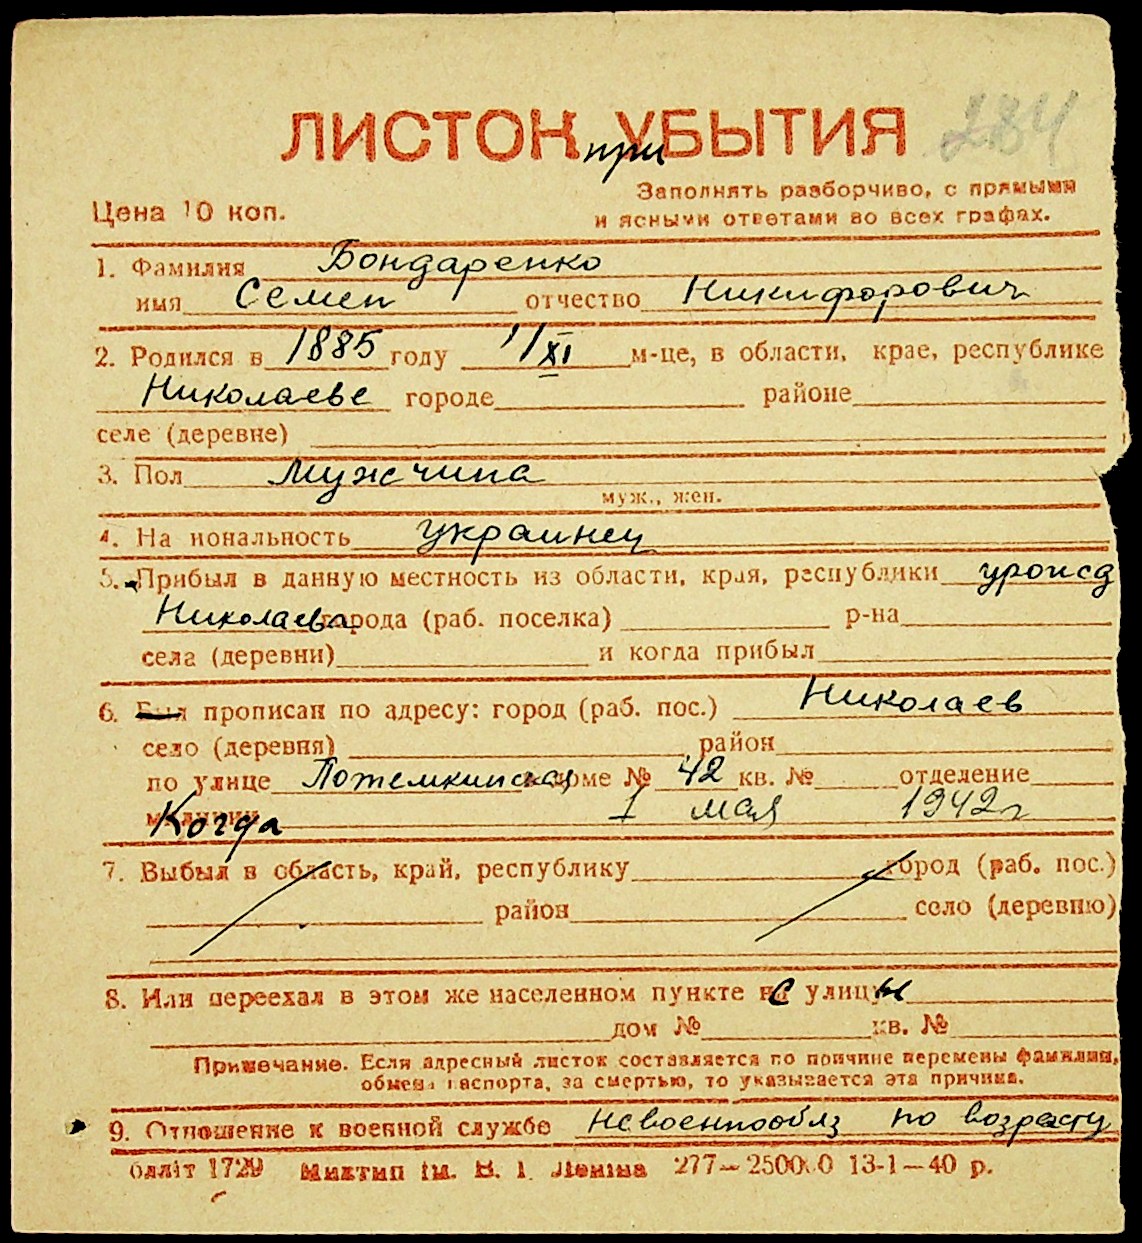 ЛИСТОК УБЫТИЯ 284
при
Заполнять разборчиво, с прямыми
Цена 10 коп.
и ясными ответами во всех графах.
1. Фамилия Бондаренко
имя Семен отчество Никифорович
2. Родился в 1885 году 11/XI м-це, в области, крае, республике
Николаеве городе районе
селе (деревне)
3. Пол Мужчина
муж., жен.
4. На иональность украинец
5. Прибыл в данную местность из области, края, республики урожд
Николаева города (раб. поселка) р-на
села (деревни) и когда прибыл
6. Был прописан по адресу: город (раб. пос.) Николаев
село (деревня) район
по улице Потемкинская доме № 42 кв. № отделение
милиции Когда 1 мая 1942 г
7. Выбыл в область, край, республику город (раб. пос.)
район село (деревню)
8. Или переехал в этом же населенном пункте с улицы
дом № кв. №
Примечание. Если адресный листок составляется по причине перемены фамилии,
обмена паспорта, за смертью, то указывается эта причина.
9. Отношение к военной службе невоеннообяз по возрасту
блліт 1729 Миктип ім. В. І. Леніна 277—250000 13-1—40 р.